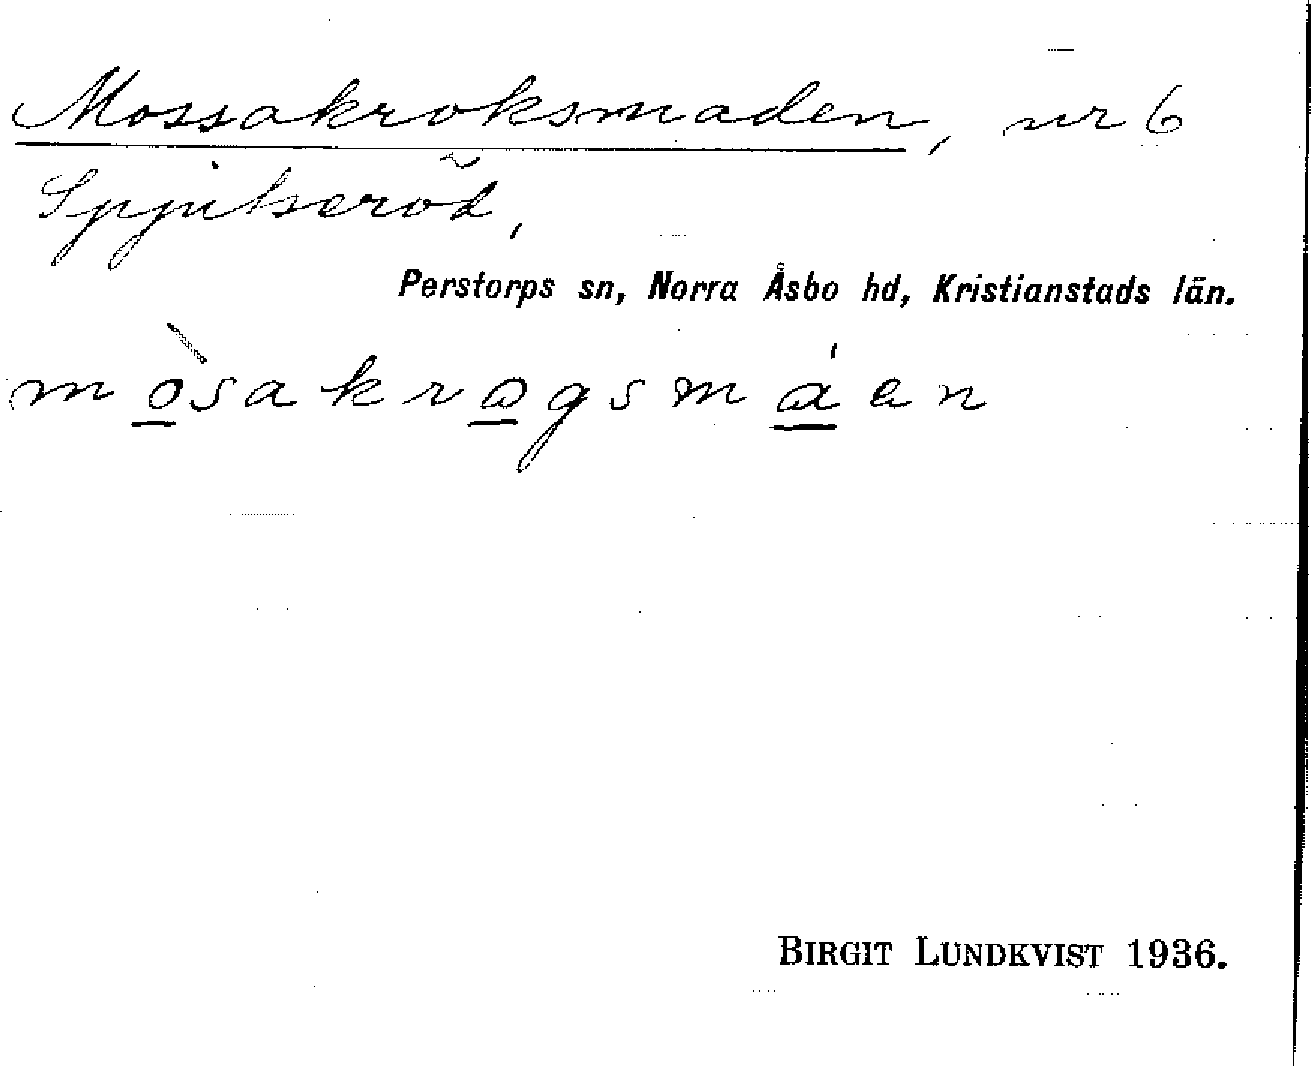 Mossakroksmaden, nr 6
Spjutseröd,
Perstorps sn, Norra Åsbo hd, Kristianstads län.
mòsakrogsmáen
BIRGIT LUNDKVIST 1936.